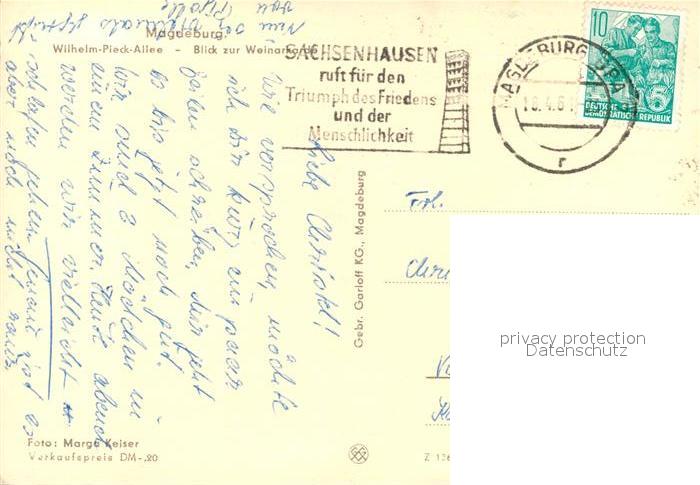 Magdeburg
Wilhelm-Pieck-Allee - Blick zur Weinarkade
SACHSENHAUSEN
ruft für den
Triumph des Friedens
und der
Menschlichkeit
MAGDEBURG BPA
r
10
DEUTSCHE
DEMOKRATISCHE REPUBLIK
Liebe Christel!
Wie versprochen, möchte
ich Dir kurz ein paar
Zeilen schreiben. Mir geht
es bis jetzt noch gut.
Wir sind 3 Mädchen in
einem Zimmer. Heute abend
werden wir vielleicht
schlafen gehen, genau ist es
aber noch nicht raus.
Frl.
Chri
Gebr. Garloff KG., Magdeburg
Foto: Margo Keiser
Verkaufspreis DM -,20
Z 136
privacy protection
Datenschutz